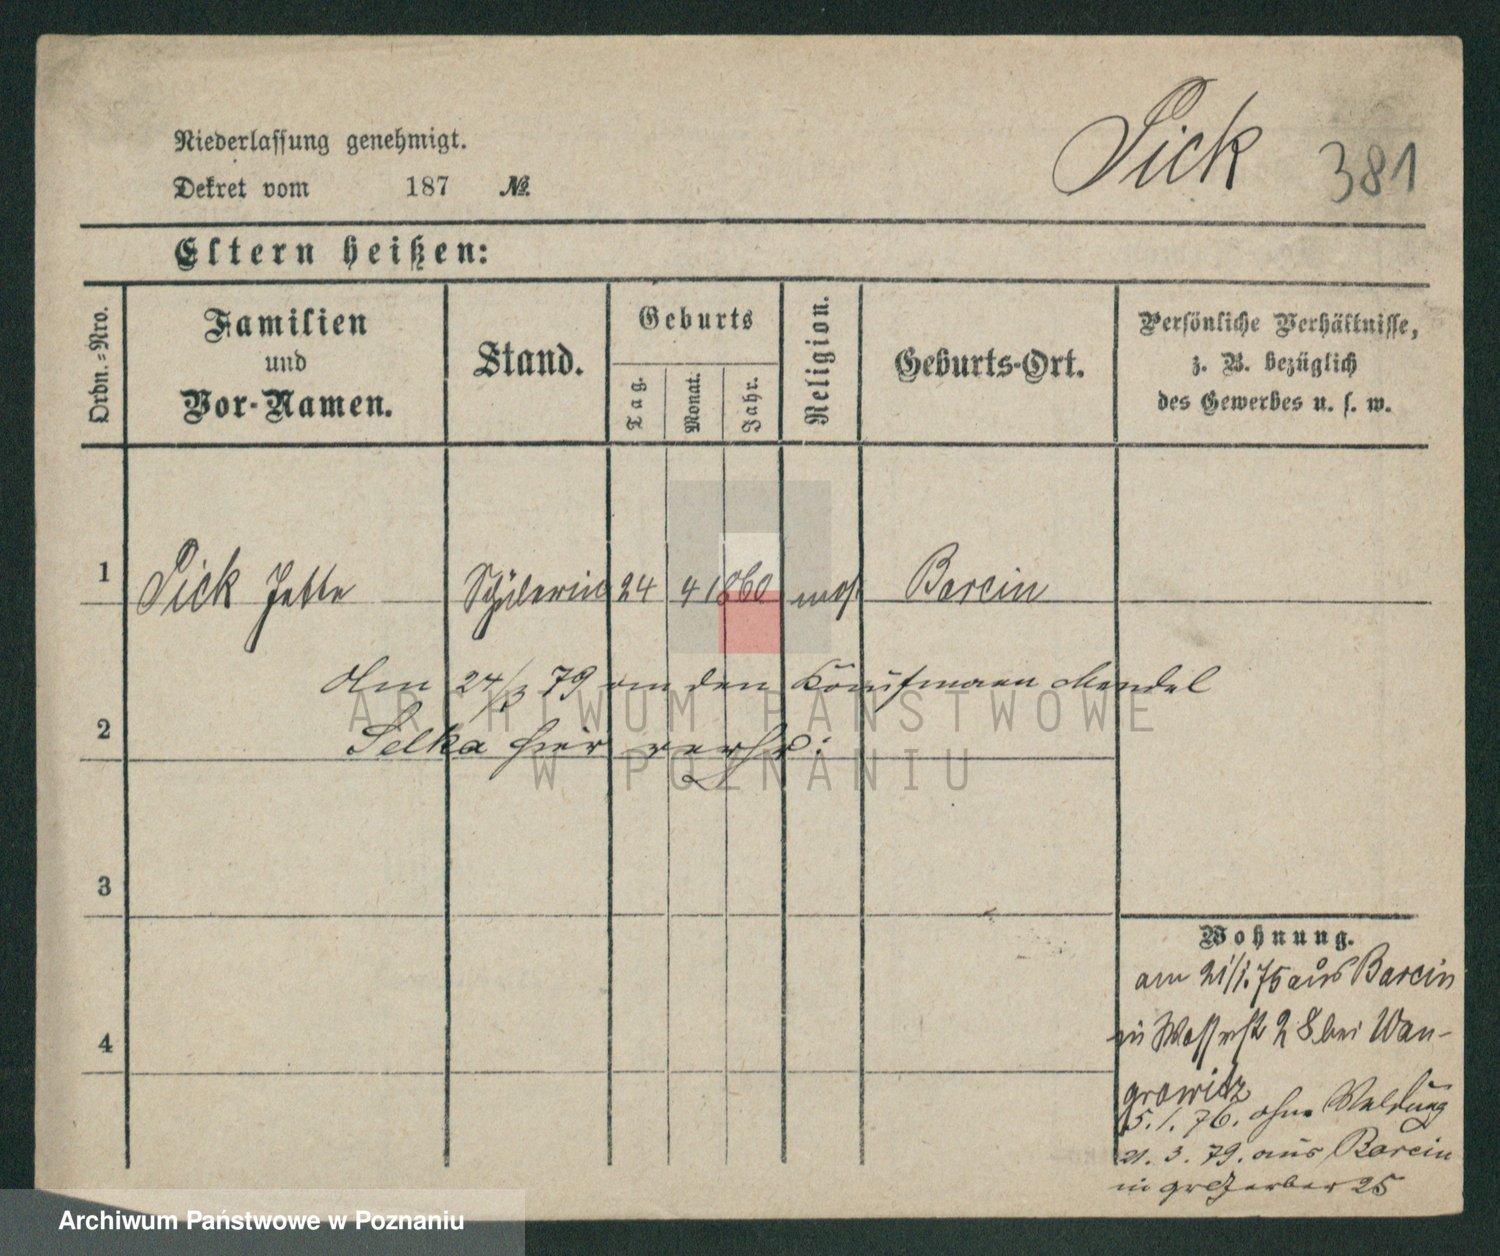 Pick 381
Niederlassung genehmigt.
Dekret vom 187 №.
Eltern heißen:
Ordn.-Nro.
Familien
und
Vor-Namen.
Stand.
Geburts
Tag.
Monat.
Jahr.
Religion.
Geburts-Ort.
Persönliche Verhältnisse,
z. B. bezüglich
des Gewerbes u. s. w.
1 Pick Jette Schülerin 24 4 1860 mos Barcin
Am 24/3 79 an den Kaufmann Mendel
2 Selka hier verh:
3
4
Wohnung.
am 21/1. 75 aus Barcin
in Wasserstr 28 bei Wan-
growitz
5. 1. 76. ohne Meldung
21. 3. 79. aus Barcin
in gr Gerber 25
ARCHIWUM PAŃSTWOWE
W POZNANIU
Archiwum Państwowe w Poznaniu